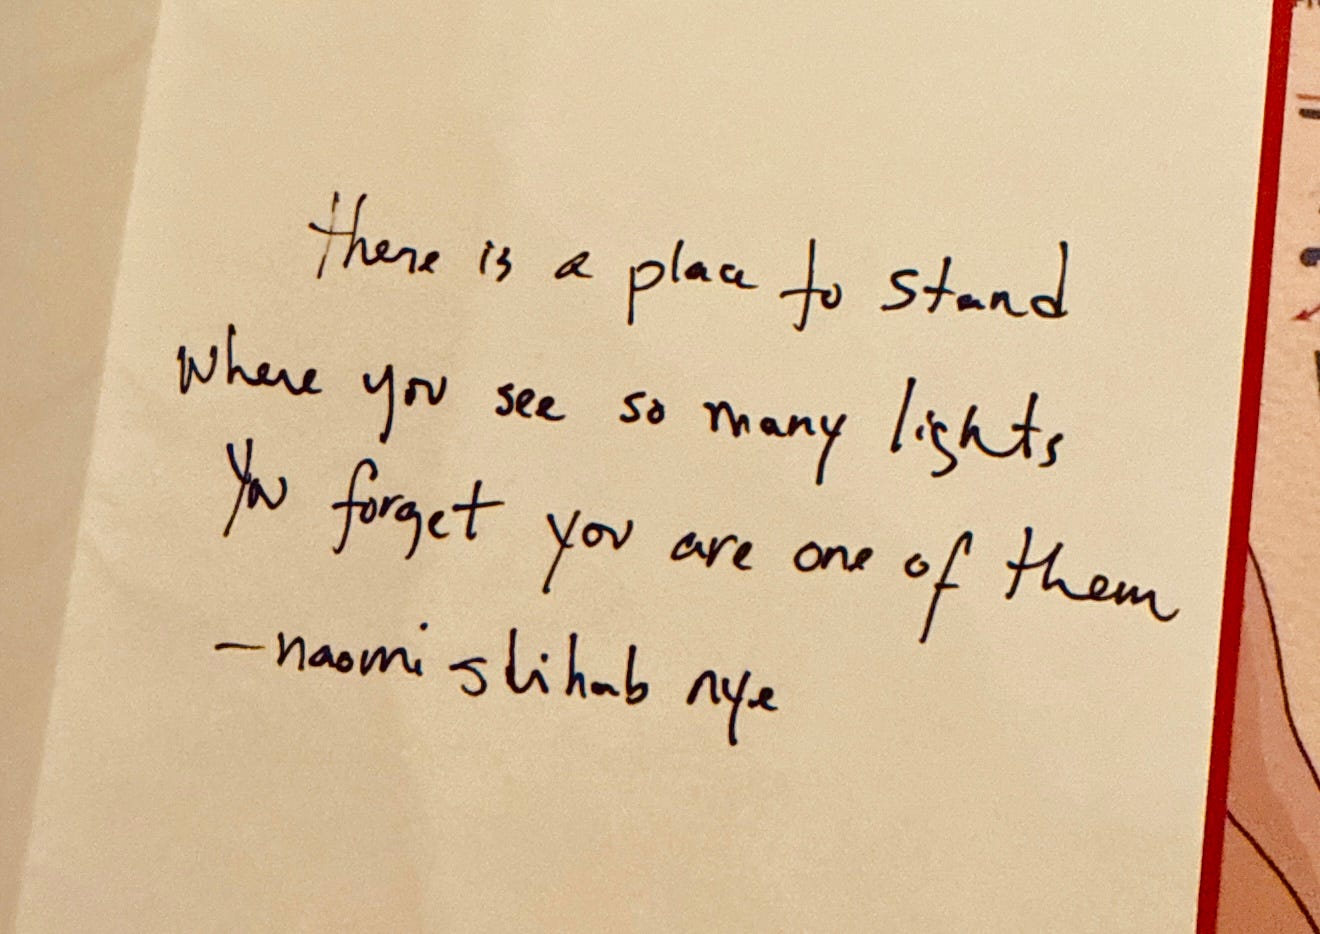 there is a place to stand
where you see so many lights
You forget you are one of them
—naomi shihab nye